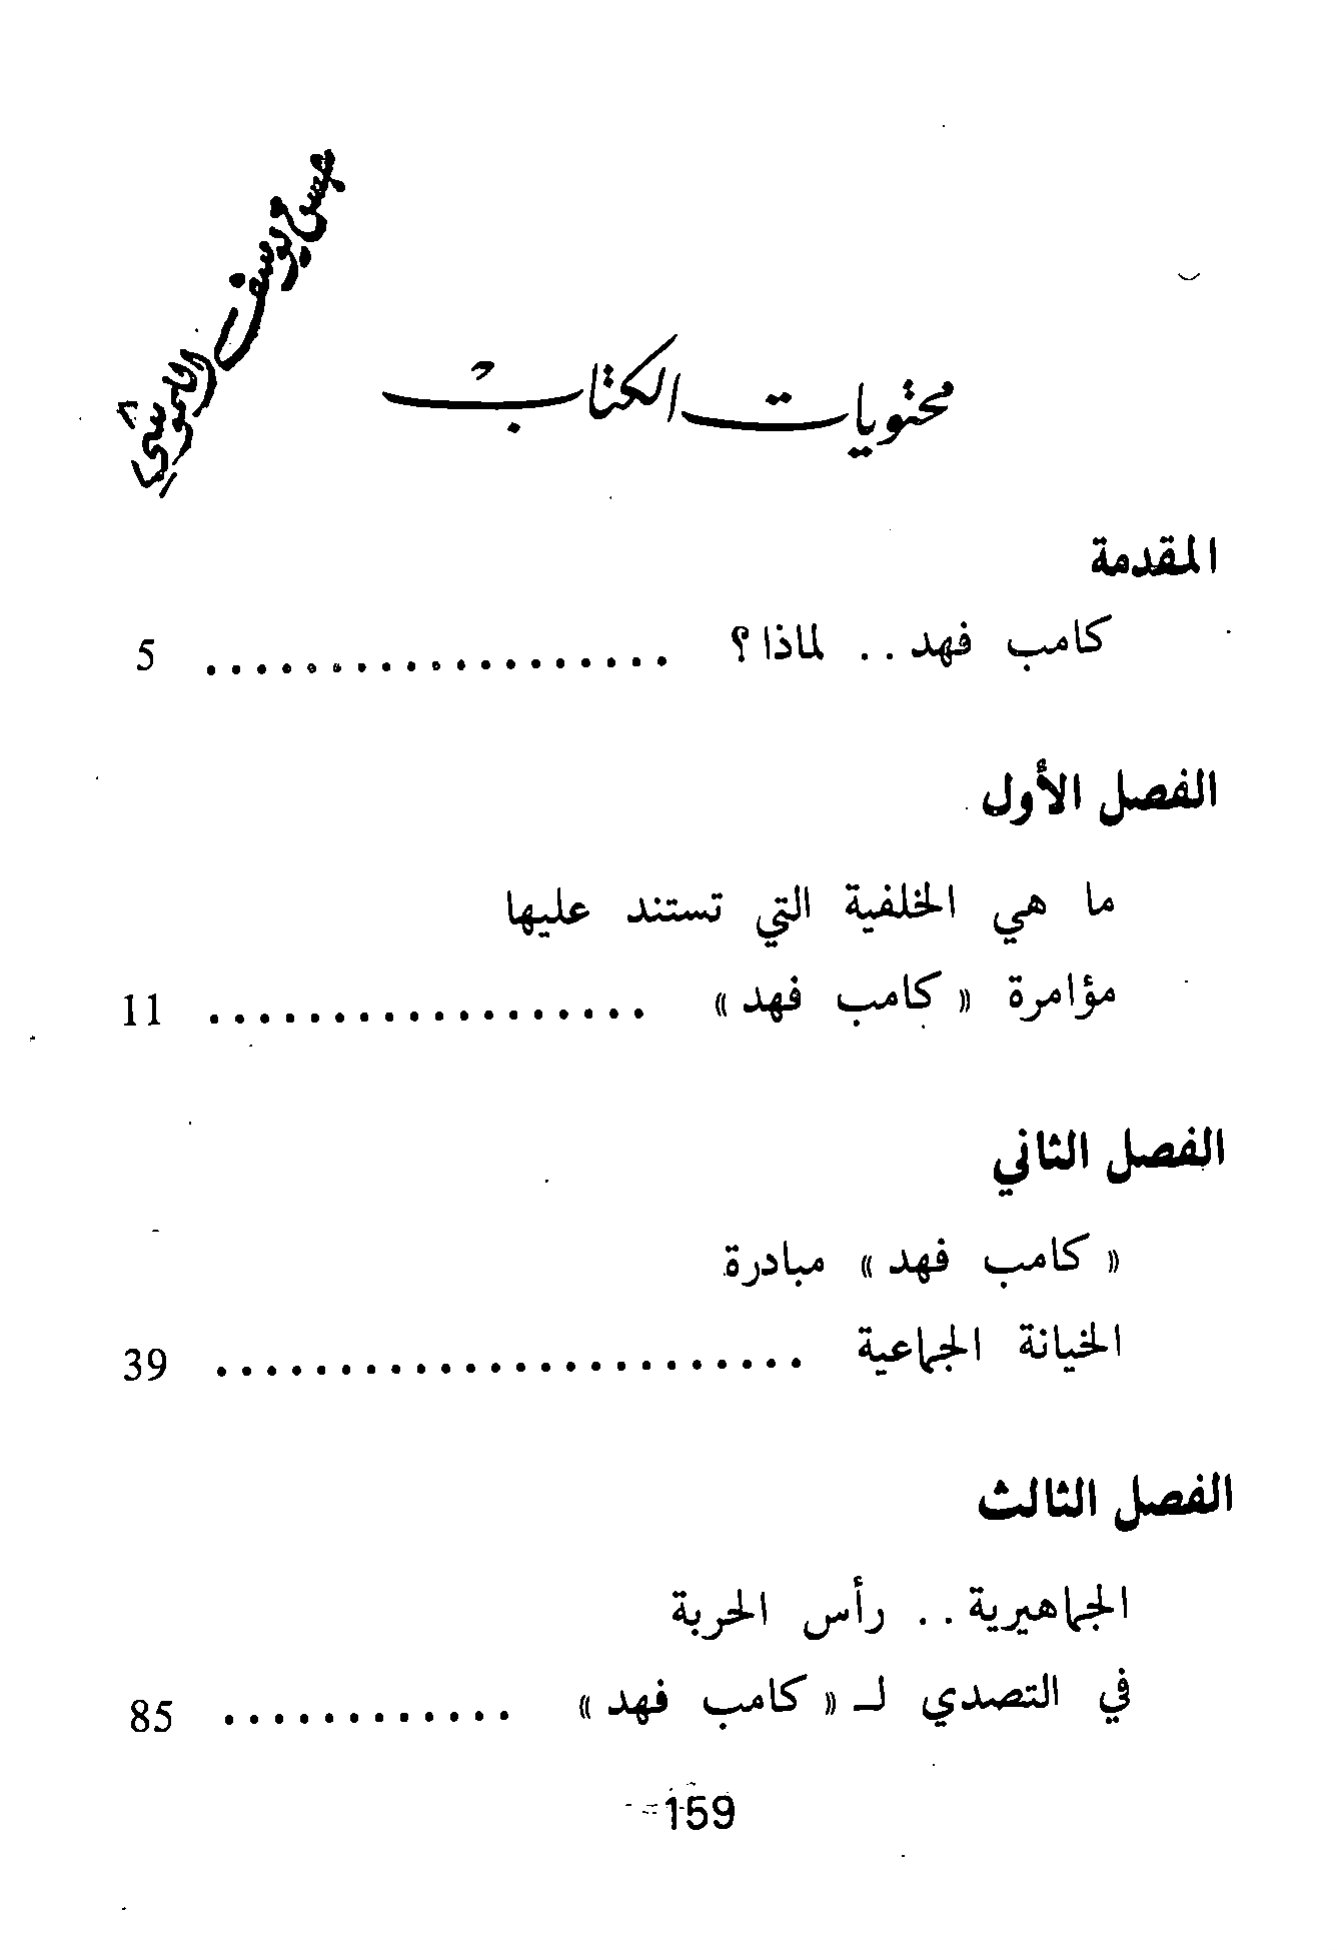 محتويات الكتاب
المقدمة
كامب فهد .. لماذا ؟ ................... 5
الفصل الأول
ما هي الخلفية التي تستند عليها
مؤامرة « كامب فهد » .................. 11
الفصل الثاني
« كامب فهد » مبادرة
الخيانة الجماعية ........................ 39
الفصل الثالث
الجماهيرية .. رأس الحربة
في التصدي لـ « كامب فهد » ............ 85
159